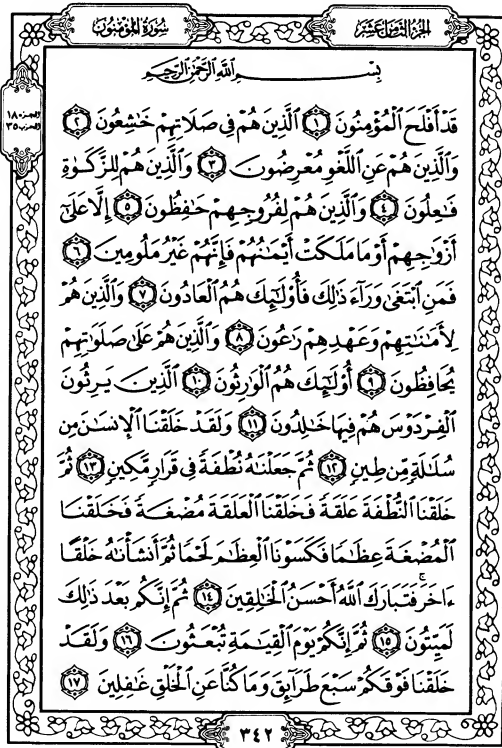 سُورَةُ المُؤْمِنُونَ
الجُزْءُ الثَّامِنَ عَشَرَ
الجزء ١٨
الحزب ٣٥
بِسْمِ اللَّهِ الرَّحْمَٰنِ الرَّحِيمِ
قَدْ أَفْلَحَ الْمُؤْمِنُونَ ١ الَّذِينَ هُمْ فِي صَلَاتِهِمْ خَاشِعُونَ ٢
وَالَّذِينَ هُمْ عَنِ اللَّغْوِ مُعْرِضُونَ ٣ وَالَّذِينَ هُمْ لِلزَّكَوٰةِ
فَاعِلُونَ ٤ وَالَّذِينَ هُمْ لِفُرُوجِهِمْ حَافِظُونَ ٥ إِلَّا عَلَىٰ
أَزْوَاجِهِمْ أَوْ مَا مَلَكَتْ أَيْمَانُهُمْ فَإِنَّهُمْ غَيْرُ مَلُومِينَ ٦
فَمَنِ ابْتَغَىٰ وَرَاءَ ذَٰلِكَ فَأُولَٰئِكَ هُمُ الْعَادُونَ ٧ وَالَّذِينَ هُمْ
لِأَمَانَاتِهِمْ وَعَهْدِهِمْ رَاعُونَ ٨ وَالَّذِينَ هُمْ عَلَىٰ صَلَوَاتِهِمْ
يُحَافِظُونَ ٩ أُولَٰئِكَ هُمُ الْوَارِثُونَ ١٠ الَّذِينَ يَرِثُونَ
الْفِرْدَوْسَ هُمْ فِيهَا خَالِدُونَ ١١ وَلَقَدْ خَلَقْنَا الْإِنسَانَ مِن
سُلَالَةٍ مِّن طِينٍ ١٢ ثُمَّ جَعَلْنَاهُ نُطْفَةً فِي قَرَارٍ مَّكِينٍ ١٣ ثُمَّ
خَلَقْنَا النُّطْفَةَ عَلَقَةً فَخَلَقْنَا الْعَلَقَةَ مُضْغَةً فَخَلَقْنَا
الْمُضْغَةَ عِظَامًا فَكَسَوْنَا الْعِظَامَ لَحْمًا ثُمَّ أَنشَأْنَاهُ خَلْقًا
ءَاخَرَ فَتَبَارَكَ اللَّهُ أَحْسَنُ الْخَالِقِينَ ١٤ ثُمَّ إِنَّكُم بَعْدَ ذَٰلِكَ
لَمَيِّتُونَ ١٥ ثُمَّ إِنَّكُمْ يَوْمَ الْقِيَامَةِ تُبْعَثُونَ ١٦ وَلَقَدْ
خَلَقْنَا فَوْقَكُمْ سَبْعَ طَرَائِقَ وَمَا كُنَّا عَنِ الْخَلْقِ غَافِلِينَ ١٧
٣٤٢